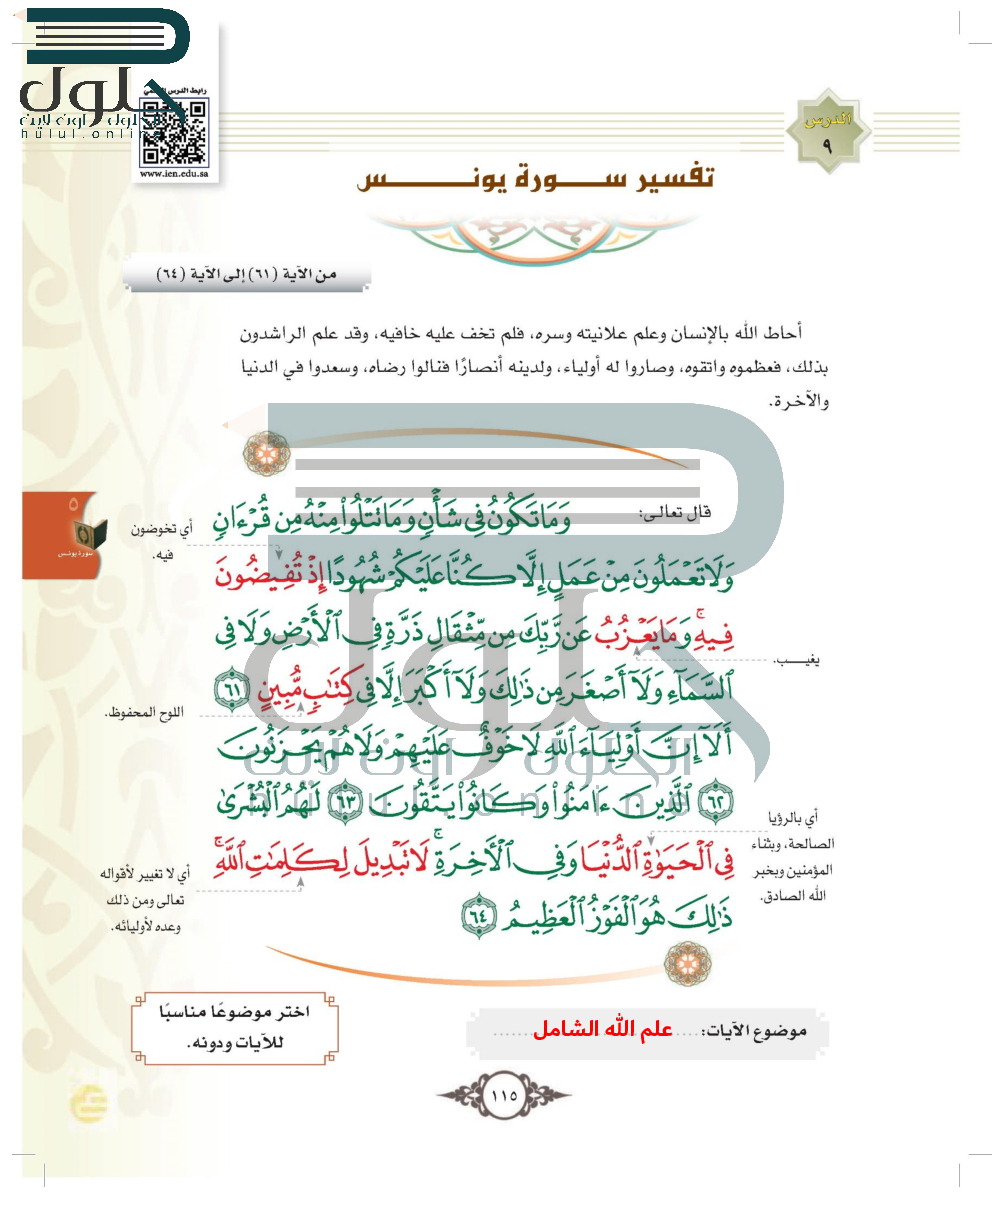 حلول
الحلول اون لاين
hulul.online
رابط الدرس الرقمي
www.ien.edu.sa
الدرس
٩
تفسير سورة يونس
من الآية (٦١) إلى الآية (٦٤)
أحاط الله بالإنسان وعلم علانيته وسره، فلم تخف عليه خافيه، وقد علم الراشدون
بذلك، فعظموه واتقوه، وصاروا له أولياء، ولدينه أنصارًا فنالوا رضاه، وسعدوا في الدنيا
والآخرة.
قال تعالى: وَمَا تَكُونُ فِي شَأْنٍ وَمَا تَتْلُوا۟ مِنْهُ مِن قُرْءَانٍ
وَلَا تَعْمَلُونَ مِنْ عَمَلٍ إِلَّا كُنَّا عَلَيْكُمْ شُهُودًا إِذْ تُفِيضُونَ
فِيهِ ۚ وَمَا يَعْزُبُ عَن رَّبِّكَ مِن مِّثْقَالِ ذَرَّةٍ فِي ٱلْأَرْضِ وَلَا فِي
ٱلسَّمَآءِ وَلَآ أَصْغَرَ مِن ذَٰلِكَ وَلَآ أَكْبَرَ إِلَّا فِي كِتَٰبٍ مُّبِينٍ ٦١
أَلَآ إِنَّ أَوْلِيَآءَ ٱللَّهِ لَا خَوْفٌ عَلَيْهِمْ وَلَا هُمْ يَحْزَنُونَ
٦٢ ٱلَّذِينَ ءَامَنُوا۟ وَكَانُوا۟ يَتَّقُونَ ٦٣ لَهُمُ ٱلْبُشْرَىٰ
فِي ٱلْحَيَوٰةِ ٱلدُّنْيَا وَفِي ٱلْأَخِرَةِ ۚ لَا تَبْدِيلَ لِكَلِمَٰتِ ٱللَّهِ ۚ
ذَٰلِكَ هُوَ ٱلْفَوْزُ ٱلْعَظِيمُ ٦٤
أي تخوضون
فيه.
يغيب.
اللوح المحفوظ.
أي بالرؤيا
الصالحة، وبثناء
المؤمنين وبخبر
الله الصادق.
أي لا تغيير لأقواله
تعالى ومن ذلك
وعده لأوليائه.
٥
سورة يونس
حلول
الحلول اون لاين
hulul.online
موضوع الآيات: .... علم الله الشامل ......
اختر موضوعًا مناسبًا
للآيات ودونه.
١١٥